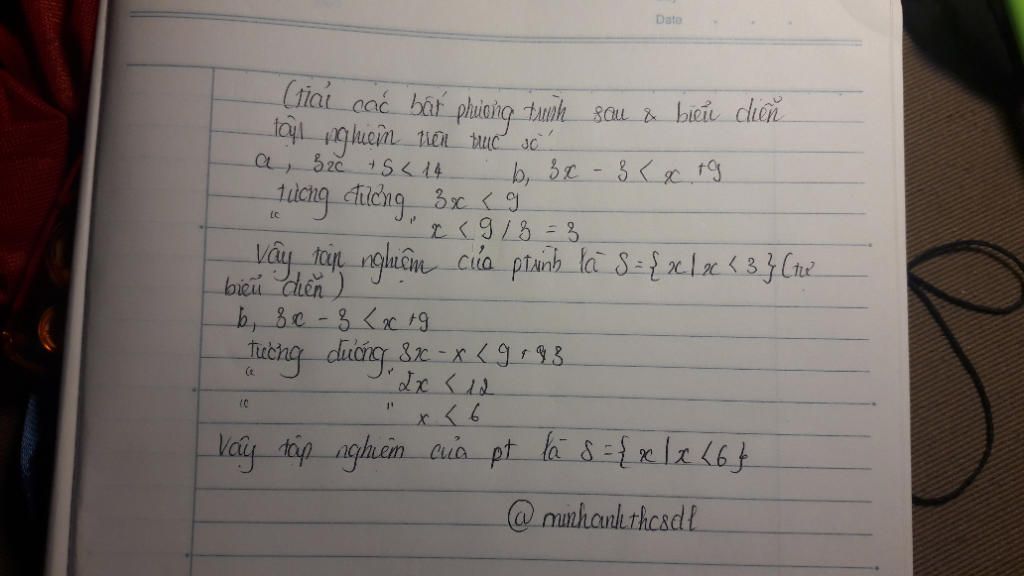 Date
Giải các bất phương trình sau & biểu diễn
tập nghiệm trên trục số
a, 3x + 5 < 14 b, 3x - 3 < x + 9
tương đương 3x < 9
" " x < 9 / 3 = 3
Vậy tập nghiệm của ptrình là S = { x | x < 3 } (tự
biểu diễn)
b, 3x - 3 < x + 9
tương đương 3x - x < 9 + 3
" " 2x < 12
" " x < 6
Vậy tập nghiệm của pt là S = { x | x < 6 }
@minhanhthcsdl